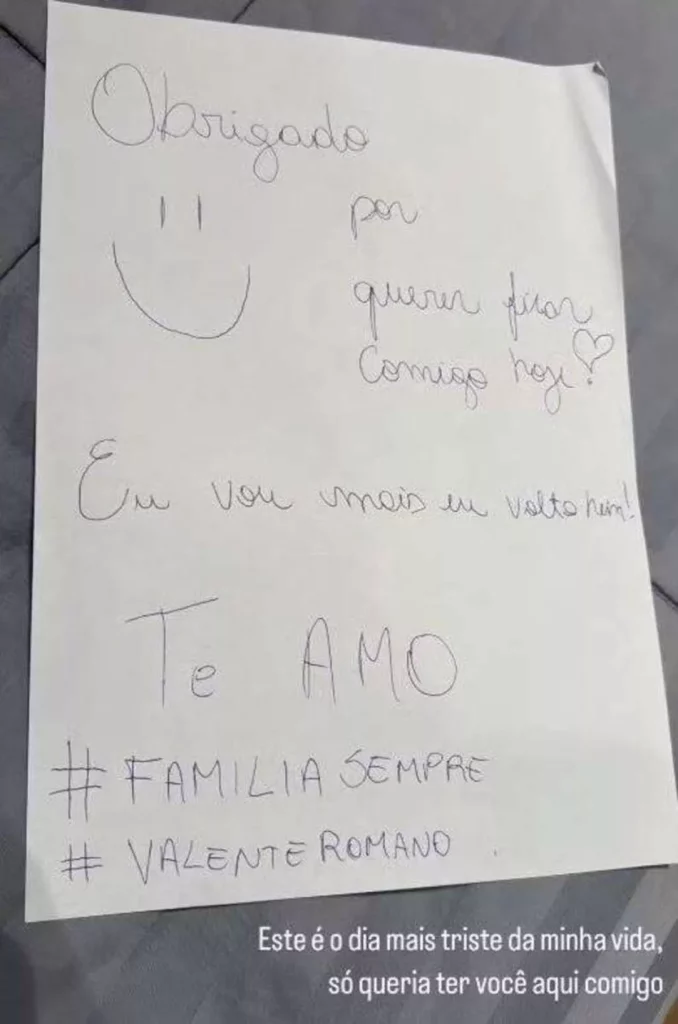 Obrigado
por
querer ficar
Comigo hoje!
Eu vou mais eu volto hem!
Te AMO
# FAMILIA SEMPRE
# VALENTE ROMANO.
Este é o dia mais triste da minha vida,
só queria ter você aqui comigo